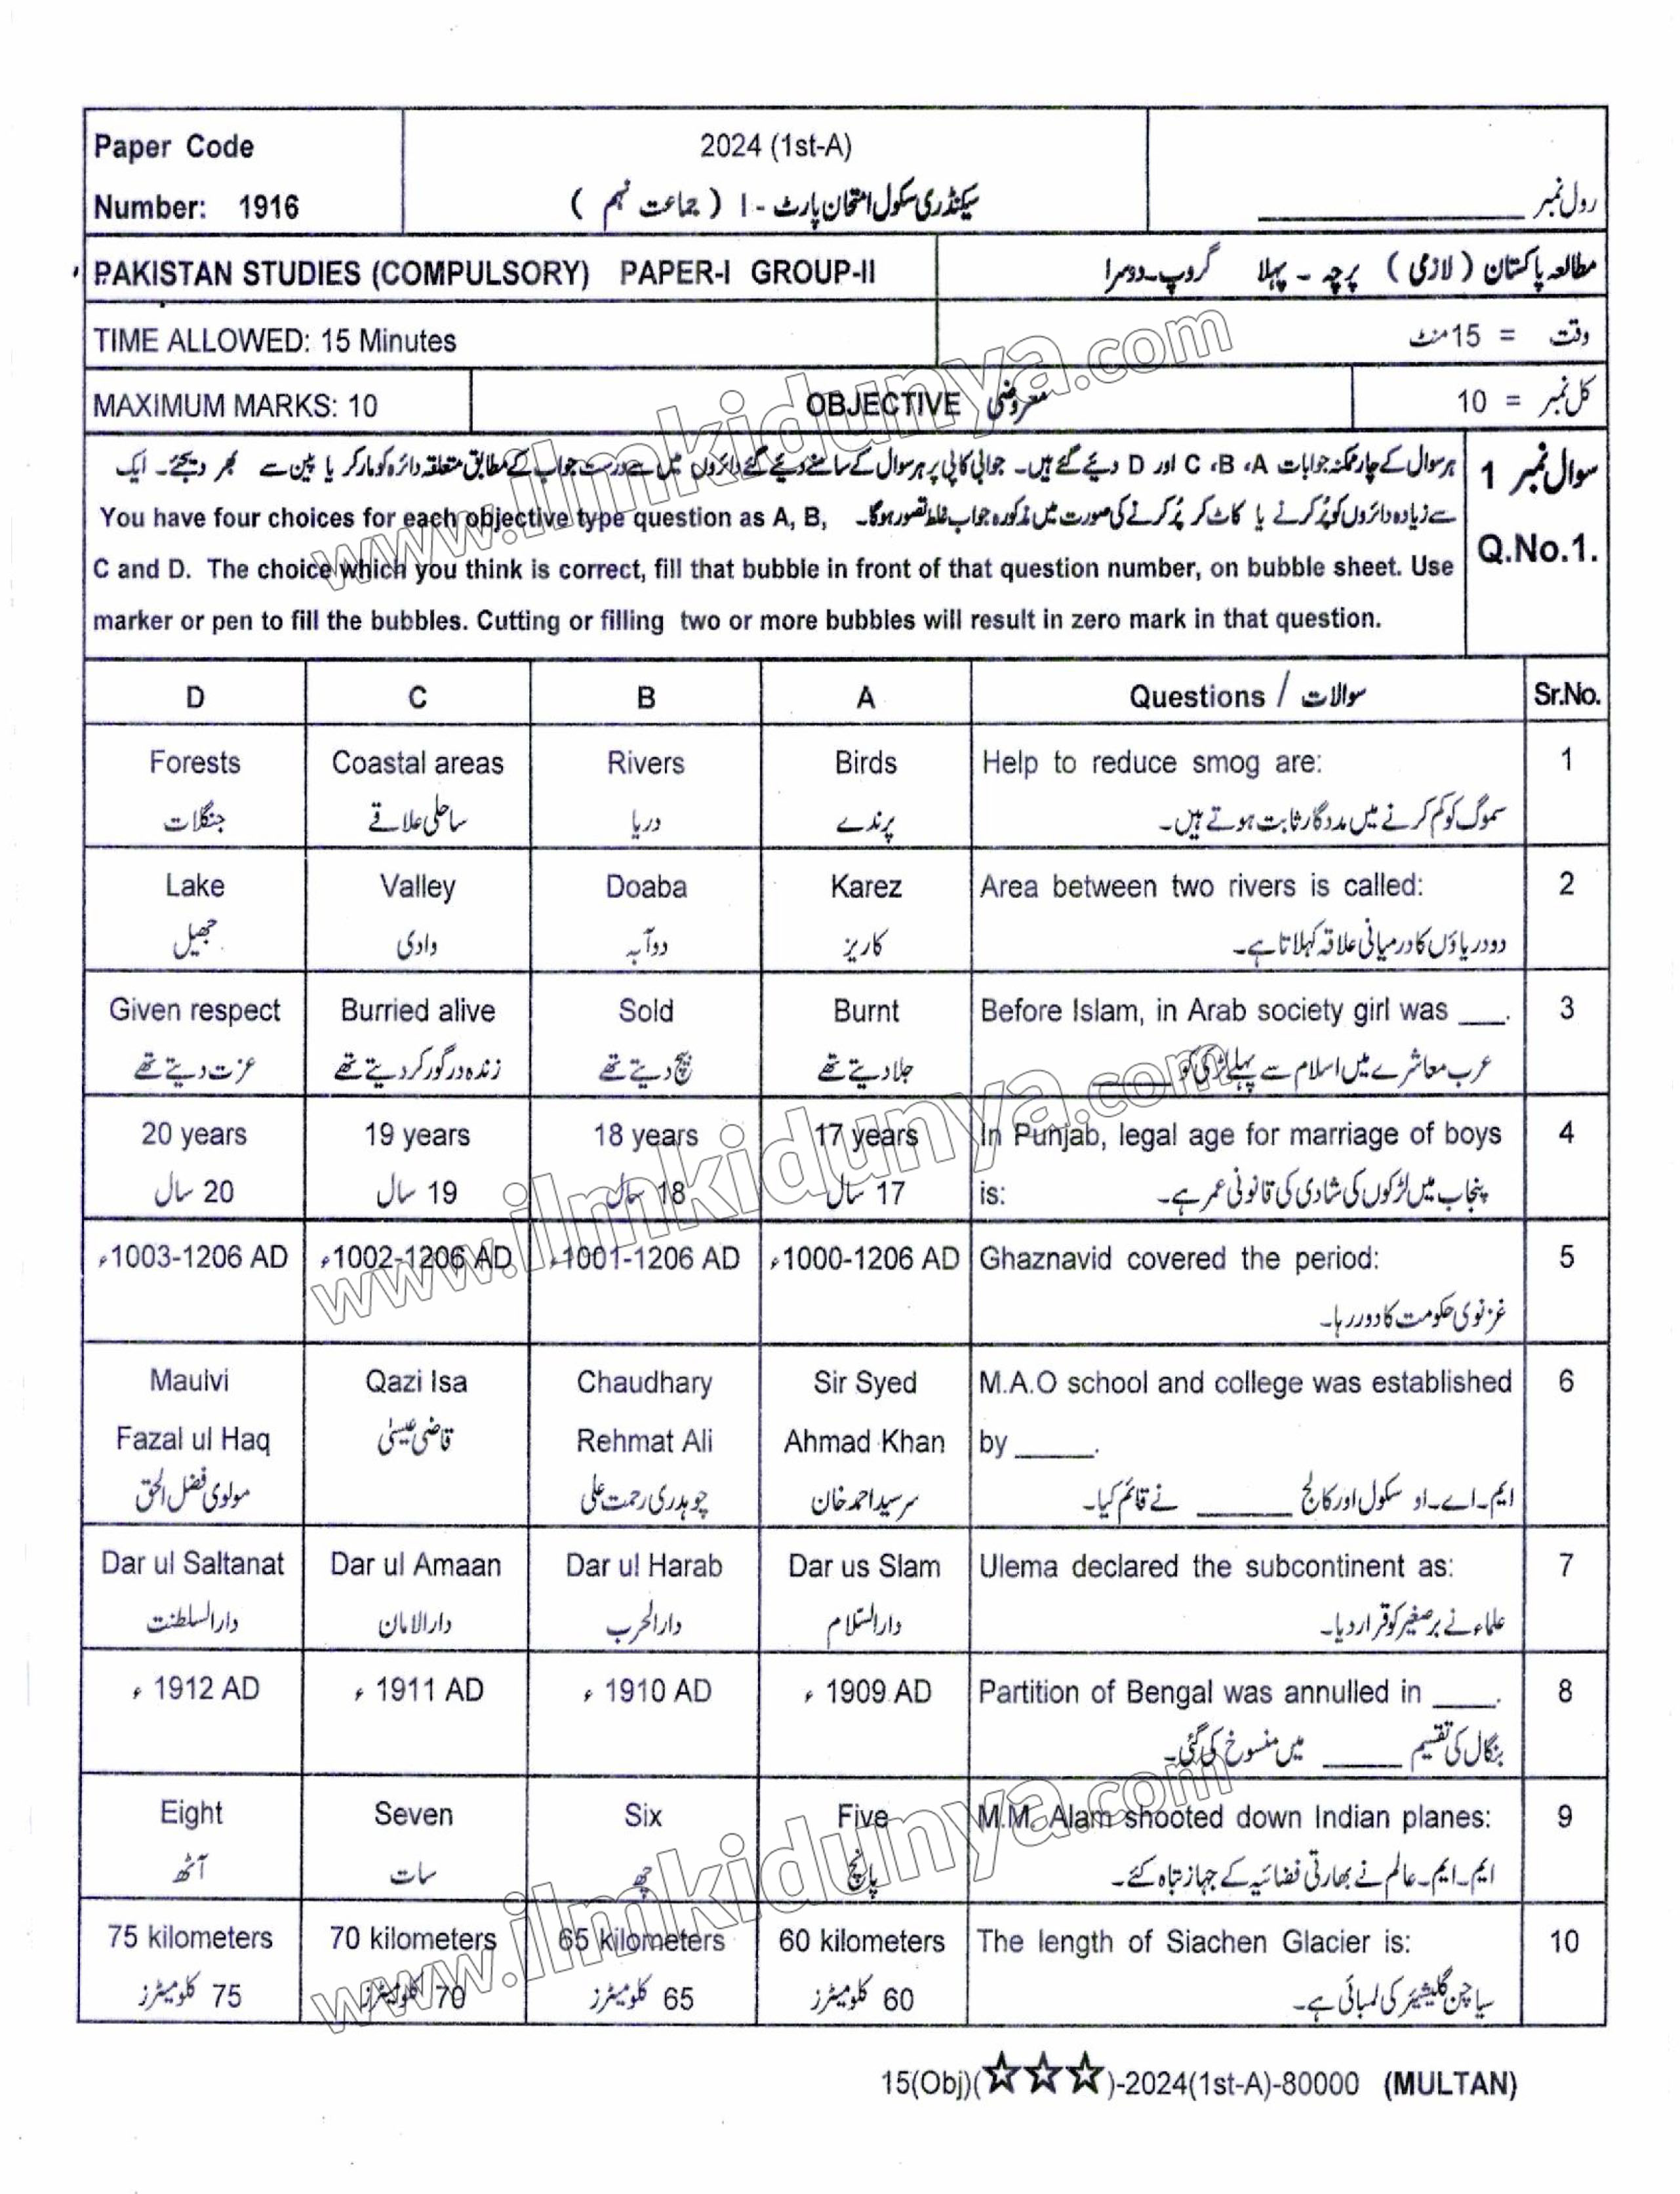 Paper Code
Number: 1916
2024 (1st-A)
سیکنڈری سکول امتحان پارٹ - I ( جماعت نہم )
رول نمبر ____________
PAKISTAN STUDIES (COMPULSORY) PAPER-I GROUP-II
مطالعہ پاکستان ( لازمی ) پرچہ - پہلا گروپ-دوسرا
TIME ALLOWED: 15 Minutes
وقت = 15 منٹ
MAXIMUM MARKS: 10
OBJECTIVE معروضی
کل نمبر = 10
سوال نمبر 1
Q.No.1.
ہر سوال کے چار ممکنہ جوابات A، B، C اور D دیئے گئے ہیں۔ جوابی کاپی پر ہر سوال کے سامنے دیئے گئے دائروں میں سے درست جواب کے مطابق متعلقہ دائرہ کو مارکر یا پین سے بھر دیجئے۔ ایک
سے زیادہ دائروں کو پُر کرنے یا کاٹ کر پُر کرنے کی صورت میں مذکورہ جواب غلط تصور ہوگا۔ You have four choices for each objective type question as A, B,
C and D. The choice which you think is correct, fill that bubble in front of that question number, on bubble sheet. Use
marker or pen to fill the bubbles. Cutting or filling two or more bubbles will result in zero mark in that question.
D C B A Questions / سوالات Sr.No.
Forests Coastal areas Rivers Birds Help to reduce smog are: 1
جنگلات ساحلی علاقے دریا پرندے سموگ کو کم کرنے میں مددگار ثابت ہوتے ہیں۔
Lake Valley Doaba Karez Area between two rivers is called: 2
جھیل وادی دوآبہ کاریز دو دریاؤں کا درمیانی علاقہ کہلاتا ہے۔
Given respect Burried alive Sold Burnt Before Islam, in Arab society girl was ___. 3
عزت دیتے تھے زندہ درگور کر دیتے تھے بیچ دیتے تھے جلا دیتے تھے عرب معاشرے میں اسلام سے پہلے لڑکی کو _____
20 years 19 years 18 years 17 years In Punjab, legal age for marriage of boys 4
20 سال 19 سال 18 سال 17 سال is: پنجاب میں لڑکوں کی شادی کی قانونی عمر ہے۔
ء1003-1206 AD ء1002-1206 AD ء1001-1206 AD ء1000-1206 AD Ghaznavid covered the period: 5
غزنوی حکومت کا دور رہا۔
Maulvi Qazi Isa Chaudhary Sir Syed M.A.O school and college was established 6
Fazal ul Haq قاضی عیسیٰ Rehmat Ali Ahmad Khan by _____.
مولوی فضل الحق چوہدری رحمت علی سرسید احمد خان ایم-اے-او سکول اور کالج ______ نے قائم کیا۔
Dar ul Saltanat Dar ul Amaan Dar ul Harab Dar us Slam Ulema declared the subcontinent as: 7
دارالسلطنت دارالامان دارالحرب دارالسّلام علماء نے برصغیر کو قرار دیا۔
ء 1912 AD ء 1911 AD ء 1910 AD ء 1909 AD Partition of Bengal was annulled in ____. 8
بنگال کی تقسیم _____ میں منسوخ کی گئی۔
Eight Seven Six Five M.M. Alam shooted down Indian planes: 9
آٹھ سات چھ پانچ ایم-ایم-عالم نے بھارتی فضائیہ کے جہاز تباہ کئے۔
75 kilometers 70 kilometers 65 kilometers 60 kilometers The length of Siachen Glacier is: 10
75 کلومیٹرز 70 کلومیٹرز 65 کلومیٹرز 60 کلومیٹرز سیاچن گلیشیئر کی لمبائی ہے۔
15(Obj)(☆☆☆)-2024(1st-A)-80000 (MULTAN)
www.ilmkidunya.com
www.ilmkidunya.com
www.ilmkidunya.com